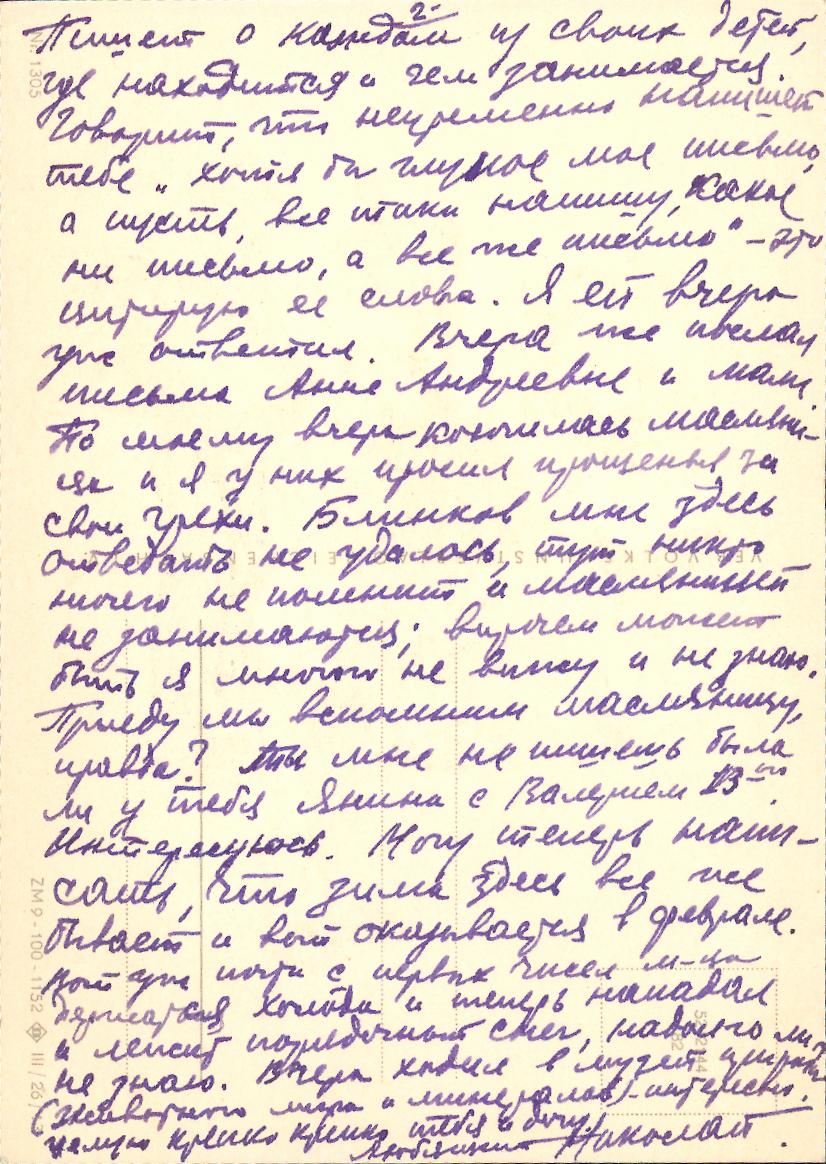 2.
Пишет о каждом из своих детей,
где находится и чем занимается.
Говорит, что непременно напишет
тебе „хотя бы глупое мое письмо,
а пусть, все таки напишу, какое
ни письмо, а все же письмо" – это
цитирую ее слова. Я ей вчера
уже ответил. Вчера же послал
письма Анне Андреевне и маме
По моему вчера кончилась масляни-
ца и я у них просил прощенья за
свои грехи. Блинков мне здесь
отведать не удалось, тут никто
ничего не помнит и масляницей
не занимаются; впрочем может
быть я многого не вижу и не знаю.
Приеду мы вспомним масляницу,
правда? Ты мне не пишешь была
ли у тебя Янина с Валерием 13-го.
Интересуюсь. Могу теперь напи-
сать, что зима здесь все же
бывает и вот оказывается в феврале.
Вот уже почти с первых чисел м-ца
держатся холода и теперь нападал
и лежит порядочный снег, надолго ли
не знаю. Вчера ходил в музей природы
(животного мира и минералов) – интересно.
Целую крепко крепко тебя и дочу.
Любящий Николай.
VEB VOLKSKUNSTVERLAG REICHENBACH
ZM 9 - 100 - 1152
III / 26 /
1305